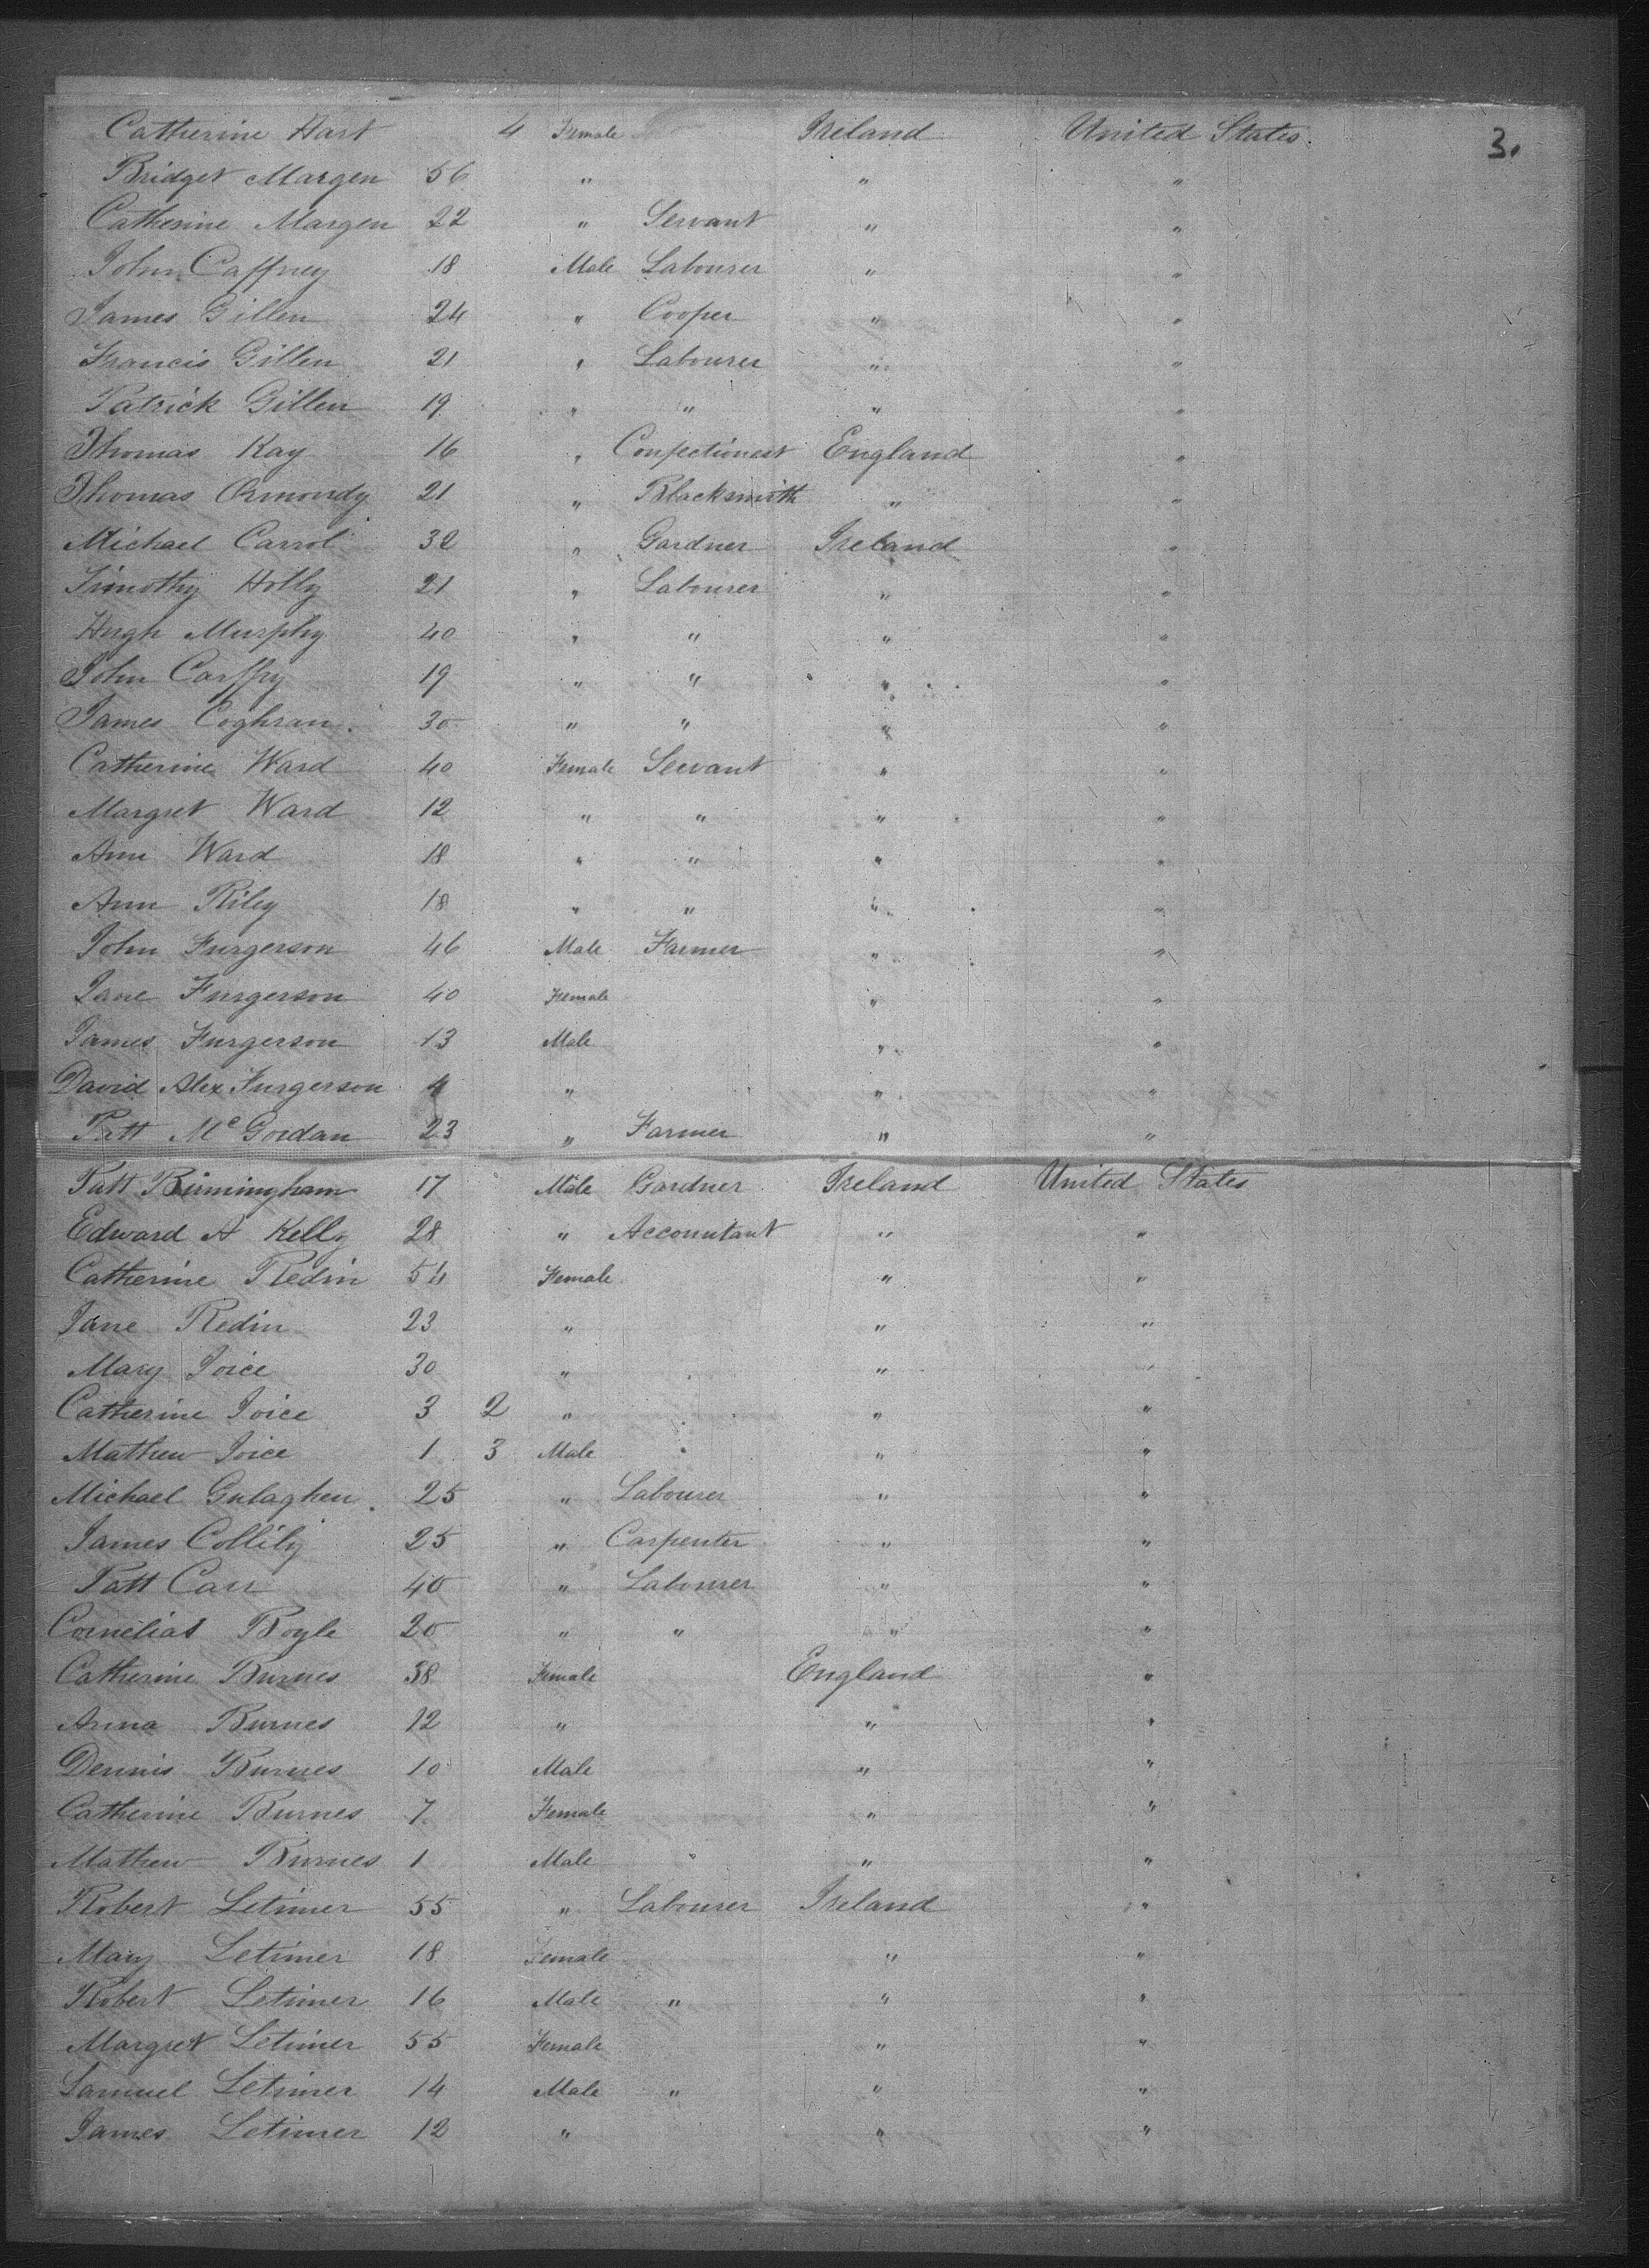 Catherine Hart 4 Female Ireland United States 3.
Bridget Margen 56 " " "
Catherine Margen 22 " Servant " "
John Caffney 18 Male Labourer " "
James Gillen 24 " Cooper " "
Francis Gillen 21 " Labourer " "
Patrick Gillen 19 " " " "
Thomas Kay 16 " Confectionest England "
Thomas Ormondy 21 " Blacksmith " "
Michael Carrol 32 " Gardner Ireland "
Timothy Holly 21 " Labourer " "
Hugh Murphy 40 " " " "
John Carffry 19 " " " "
James Coghran 30 " " " "
Catherine Ward 40 Female Servant " "
Margret Ward 12 " " " "
Ann Ward 18 " " " "
Ann Riley 18 " " " "
John Furgerson 46 Male Farmer " "
Jane Furgerson 40 Female " "
James Furgerson 13 Male " "
David Alex Furgerson 4 " " "
Patt McGordan 23 " Farmer " "
Patt Birmingham 17 Male Gardner Ireland United States
Edward A Kelly 28 " Accountant " "
Catherine Redin 54 Female " "
Jane Redin 23 " " "
Mary Joice 30 " " "
Catherine Joice 3 2 " " "
Mathew Joice 1 3 Male " "
Michael Gulaghen 25 " Labourer " "
James Collily 25 " Carpenter " "
Patt Carr 40 " Labourer " "
Cornelias Boyle 20 " " " "
Catherine Burnes 38 Female England "
Anna Burnes 12 " " "
Dennis Burnes 10 Male " "
Catherine Burnes 7 Female " "
Mathew Burnes 1 Male " "
Robert Letimer 55 " Labourer Ireland "
Mary Letimer 18 Female " "
Robert Letimer 16 Male " " "
Margret Letimer 55 Female " "
Samuel Letimer 14 Male " " "
James Letimer 12 " " "